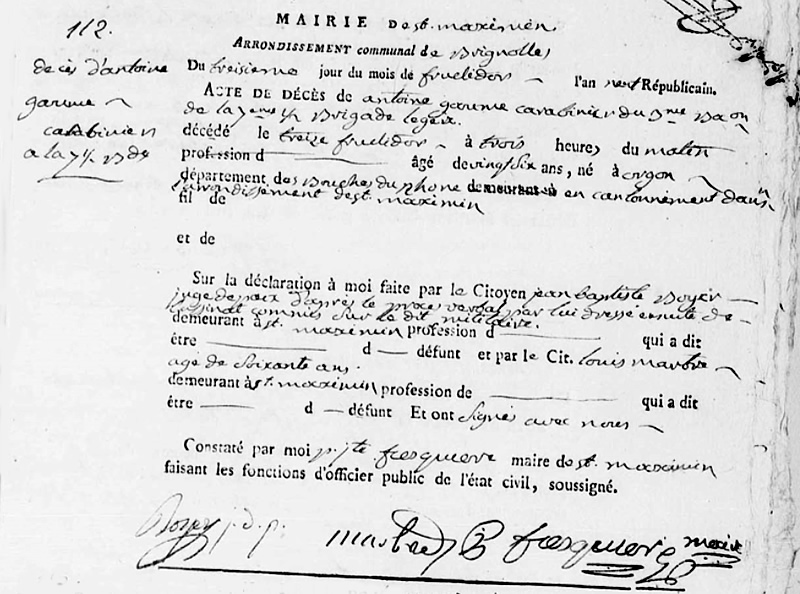 112.
MAIRIE de st. maximin
ARRONDISSEMENT communal de Brignolles
Du treisieme jour du mois de fructidor l'an neuf Républicain.
décès d'antoine
garume
carabinier
a la 7 1/2 Bde
ACTE DE DÉCÈS de antoine garume carabinier du 3me Baon
de la 7eme 1/2 Brigade legere.
décédé le treize fructidor à trois heures du matin
profession d âgé de vingt six ans, né à orgon
département des Bouches du rhone demeurant à en cantonnement dans
l'arrondissement de st. maximin
fil de
et de
Sur la déclaration à moi faite par le Citoyen jean baptiste Boyer
juge de paix d'après le proces verbal par lui dressé ensuite de
l'assassinat commis sur le dit militaire.
demeurant à st. maximin profession d qui a dit
être d défunt et par le Cit. louis
agé de Soixante ans.
demeurant à st. maximin profession de qui a dit
être d défunt Et ont signés avec nous
Constaté par moi fasquiere maire de st. maximin
faisant les fonctions d'officier public de l'état civil, soussigné.
Boyer j. d. p.
fasquiere maire